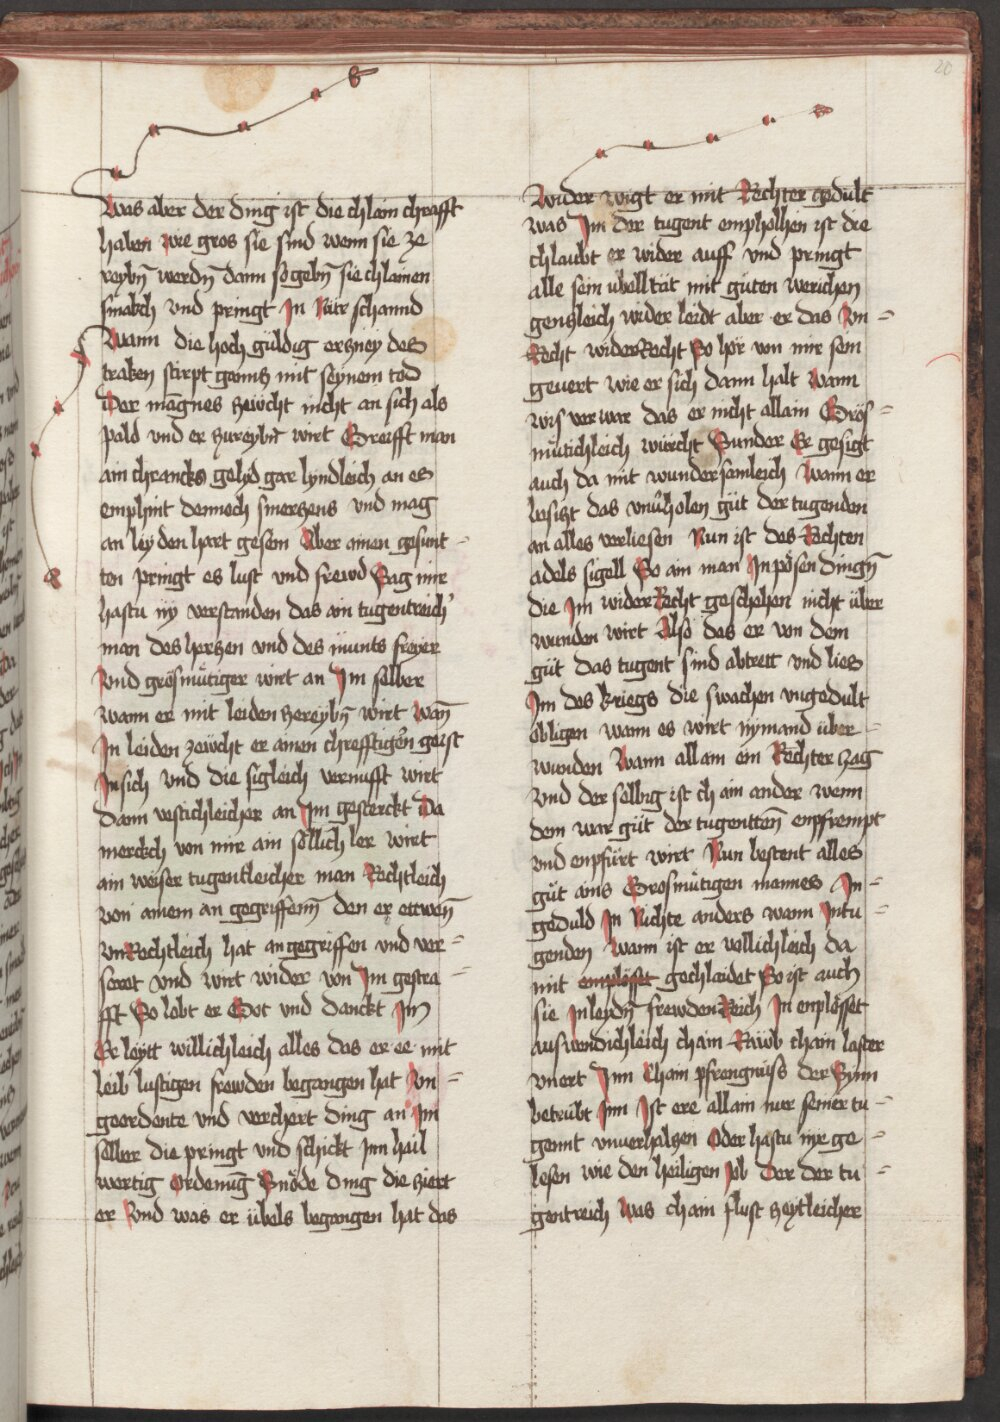 20
Was aber der ding ist die chlain chrafft
haben wie gros sie sind wenn sie ze
reybn̄ werdn̄ dann so gebn̄ sie chlainen
smakch vnd pringt In Nitr schannd
Wann die hoch güldig erczney des
traken stirpt ganncz mit seynem tod
Der magnes zewcht nicht an sich als
pald vnd er zureybn̄t wirt Greifft man
ain chrancks gelyd gar lyndleich an es
emphint dennoch smerczens vnd mag
an leyden hart gesein Aber ainen gesunt-
ten pringt es lust vnd frewd Sag mir
hastu ny verstanden das ain tugentreich
man des herczen vnd des munts freyer
Vnd grösmütiger wirt an Im selber
wann er mit leiden zereybn̄ wirt wan̄
In leiden zewcht er ainen chrefftigen geist
In sich vnd die sigleich vernufft wirt
dann vestichleicher an Im gesterckt Da
merckch von mir ain söllich ler wirt
ain weiser tugentleicher man Rechtleich
von ainem an gegriffenn̄ den er ettwen̄
vnRechtleich hat an gegriffen vnd ver-
seret vnd wirt wider von Im gestra-
fft So lobt er Got vnd danckt Im
Er leytt willichleich alles das er ee mit
leib lustigen frewden begangen hat Vn-
geordente vnd verchert ding an Im
selber die pringt vnd schickt Inn hail
wertig Ordenūg Snöde ding die ziert
er Vnd was er übels begangen hat das
Wider wigt er mit Rechter gedult
was Im der tugent empholhen ist die
chlaubt er wider auff vnd pringt
alle sein vbelltät mit güten werichen
genczleich wider leidt aber er das Vn-
Recht widerRecht So hör von mir sein
geuert wie er sich dann halt Wann
wis ver war das er nicht allain Grös-
mütichleich würcht Sunder Er gesigt
auch da mit wundersamleich Wann er
besiczt das vnuerholen güt der tugenden
an alles verliesen Nun ist des Rechten
adels sigell So ain man In pösen dingn̄
die Im widerRecht geschehen nicht über
wunden wirt Also das er von dem
güt das tugent sind abtrett vnd lies
Im des kriegs die swachen vngedult
obligen wann es wirt nymand über-
wunden Wann allain ein Rechter zag
Vnd der selbig ist chain ander wenn
dem war güt der tugentten̄ enpfrempt
vnd enpfürt wirt Nun bestent alles
güt ains Grosmütigen mannes In-
geduld In Nichte anders wann Intu-
genden Wann ist er vollichleich da
mit emplösset gechlaidet So ist auch
sie In leydn̄ frewdenReich In enplösset
auswendichleich chain Rawb chain laster
vnert Inn Chain pfrengnüss der Synn
betrübt Inn Ist ere allain nur seiner tu-
gennt vnuerhalczen Oder hastu nye ge-
lesen wie den heiligen Job Der der tu-
gentreich Was chain flust zeytleicher